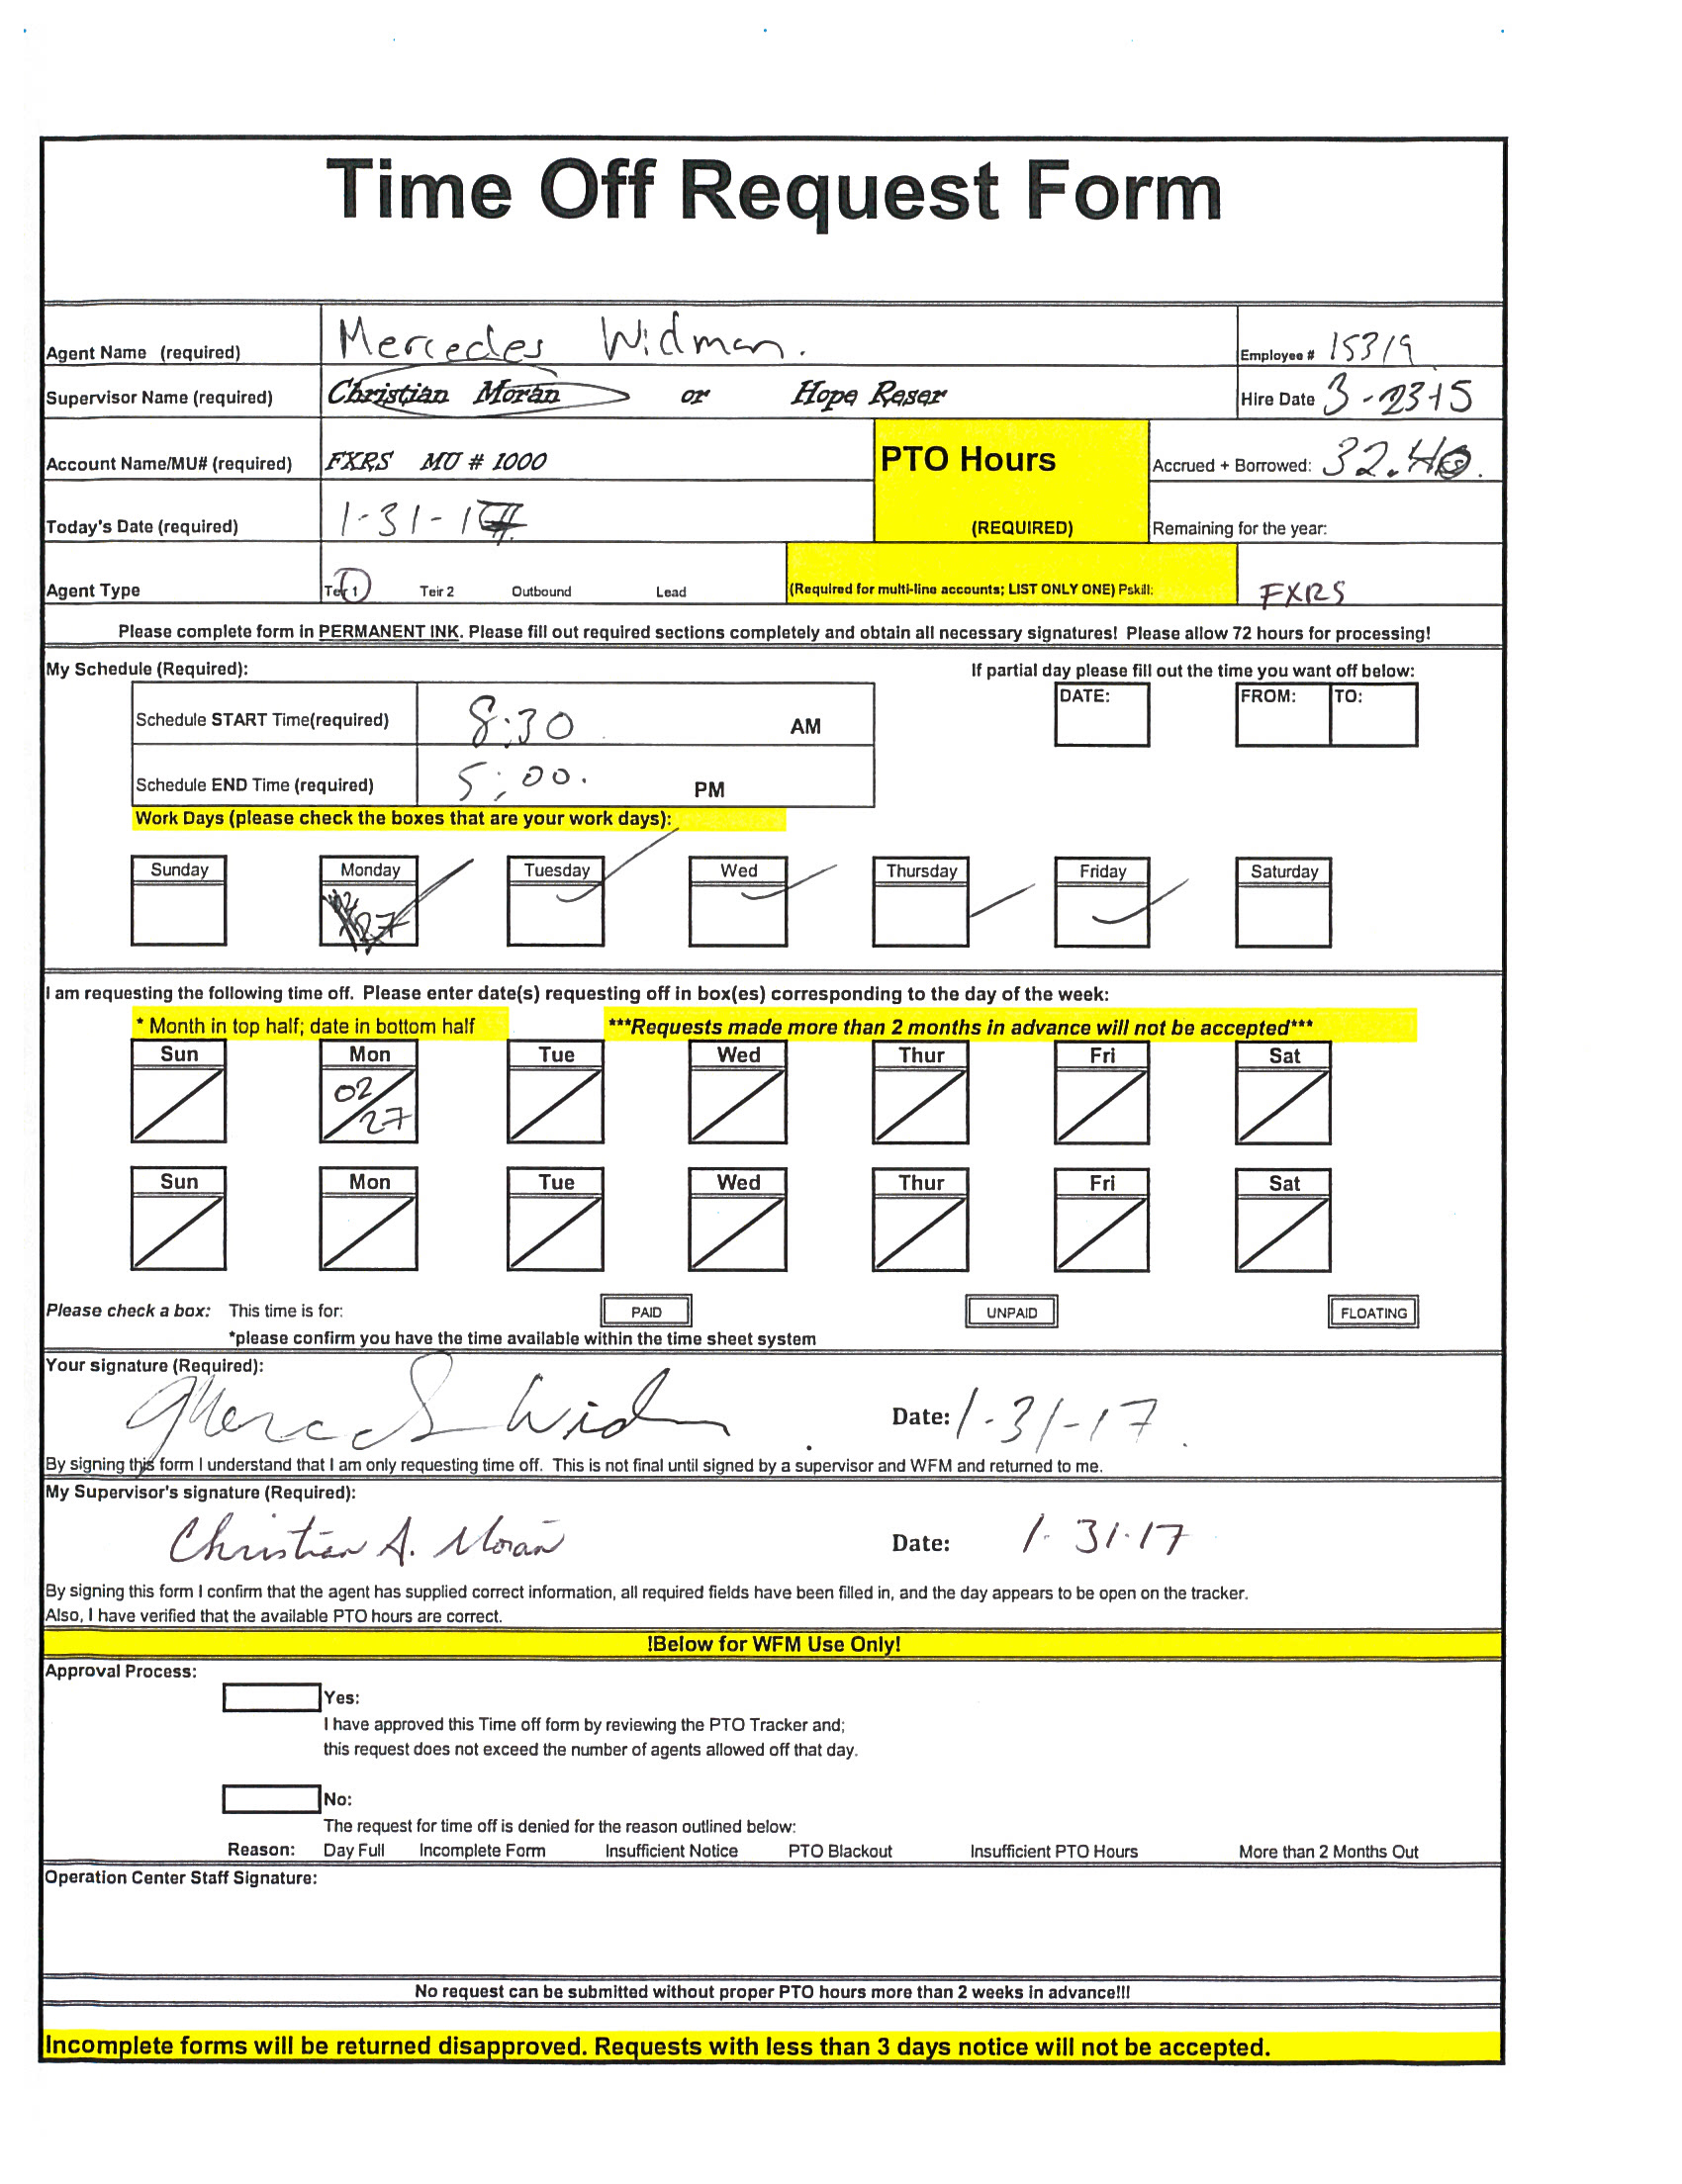 Time Off Request Form
Agent Name (required) Mercedes Widman. Employee # 15319
Supervisor Name (required) Christian Moran or Hope Reser Hire Date 3-23-15
Account Name/MU# (required) FXRS MU # 1000 PTO Hours Accrued + Borrowed: 32.40.
Today's Date (required) 1-31-17 (REQUIRED) Remaining for the year:
Agent Type Teir 1 Teir 2 Outbound Lead (Required for multi-line accounts; LIST ONLY ONE) Pskill: FXRS
Please complete form in PERMANENT INK. Please fill out required sections completely and obtain all necessary signatures! Please allow 72 hours for processing!
My Schedule (Required): If partial day please fill out the time you want off below:
DATE: FROM: TO:
Schedule START Time(required) 8:30 AM
Schedule END Time (required) 5:00. PM
Work Days (please check the boxes that are your work days):
Sunday Monday Tuesday Wed Thursday Friday Saturday
27
I am requesting the following time off. Please enter date(s) requesting off in box(es) corresponding to the day of the week:
* Month in top half; date in bottom half ***Requests made more than 2 months in advance will not be accepted***
Sun Mon Tue Wed Thur Fri Sat
02
27
Sun Mon Tue Wed Thur Fri Sat
Please check a box: This time is for: PAID UNPAID FLOATING
*please confirm you have the time available within the time sheet system
Your signature (Required):
Date: 1-31-17.
By signing this form I understand that I am only requesting time off. This is not final until signed by a supervisor and WFM and returned to me.
My Supervisor's signature (Required):
Christian A. Moran Date: 1-31-17
By signing this form I confirm that the agent has supplied correct information, all required fields have been filled in, and the day appears to be open on the tracker.
Also, I have verified that the available PTO hours are correct.
!Below for WFM Use Only!
Approval Process:
Yes:
I have approved this Time off form by reviewing the PTO Tracker and;
this request does not exceed the number of agents allowed off that day.
No:
The request for time off is denied for the reason outlined below:
Reason: Day Full Incomplete Form Insufficient Notice PTO Blackout Insufficient PTO Hours More than 2 Months Out
Operation Center Staff Signature:
No request can be submitted without proper PTO hours more than 2 weeks in advance!!!
Incomplete forms will be returned disapproved. Requests with less than 3 days notice will not be accepted.